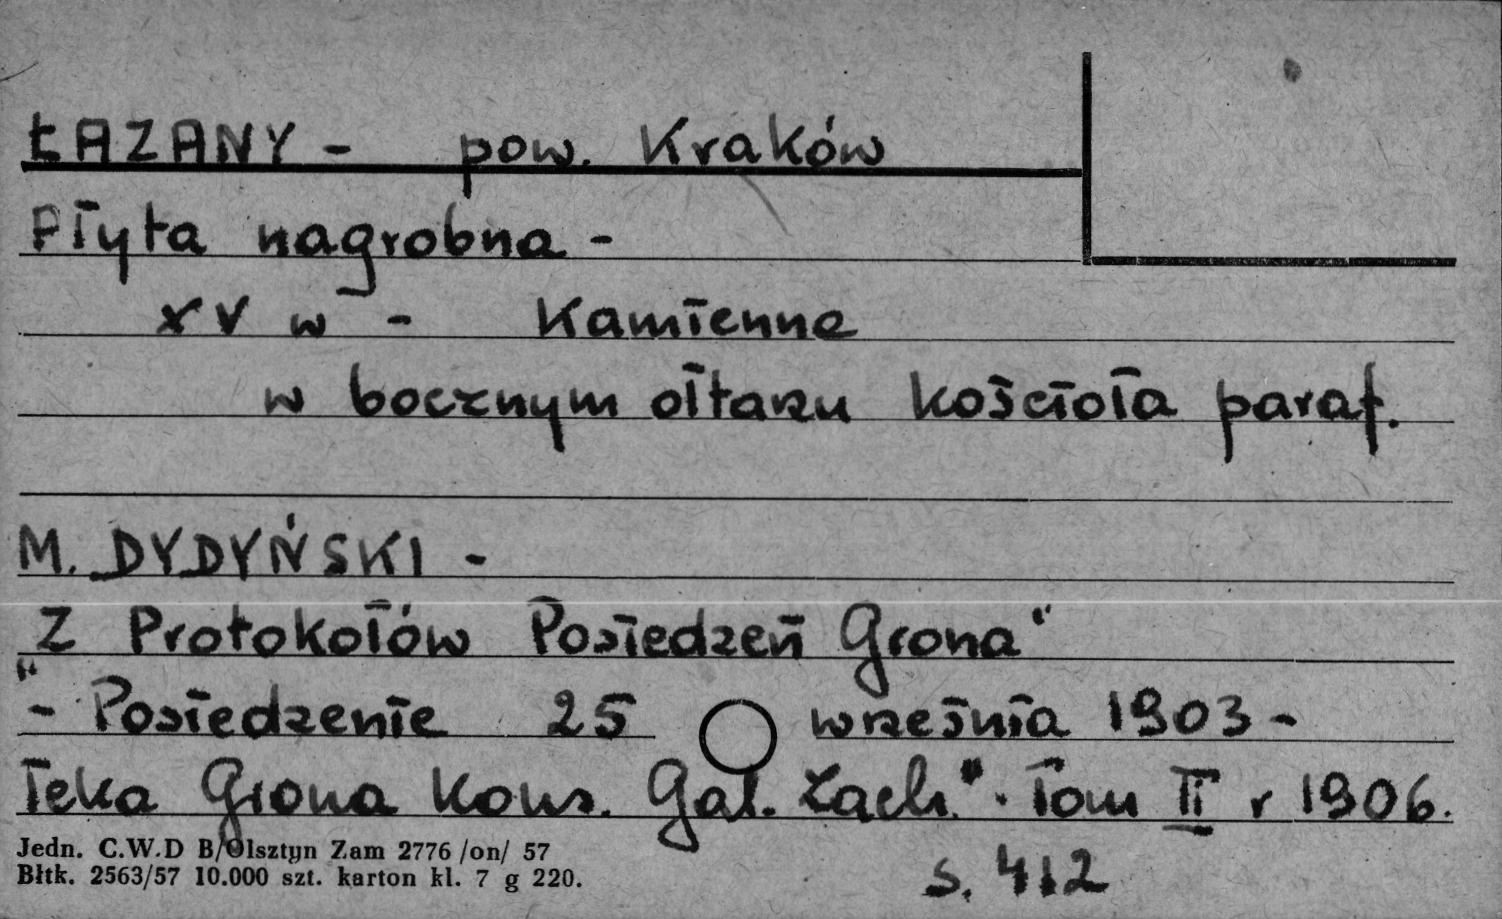 ŁAZANY - pow. Kraków
Płyta nagrobna -
XV w - Kamienne
w bocznym ołtarzu kościoła paraf.
M. DYDYŃSKI -
"Z Protokołów Posiedzeń Grona"
- Posiedzenie 25 września 1903 -
"Teka Grona Kons. Gal. Zach." Tom II r 1906.
s. 412
Jedn. C.W.D B/Olsztyn Zam 2776 /on/ 57
Błtk. 2563/57 10.000 szt. karton kl. 7 g 220.